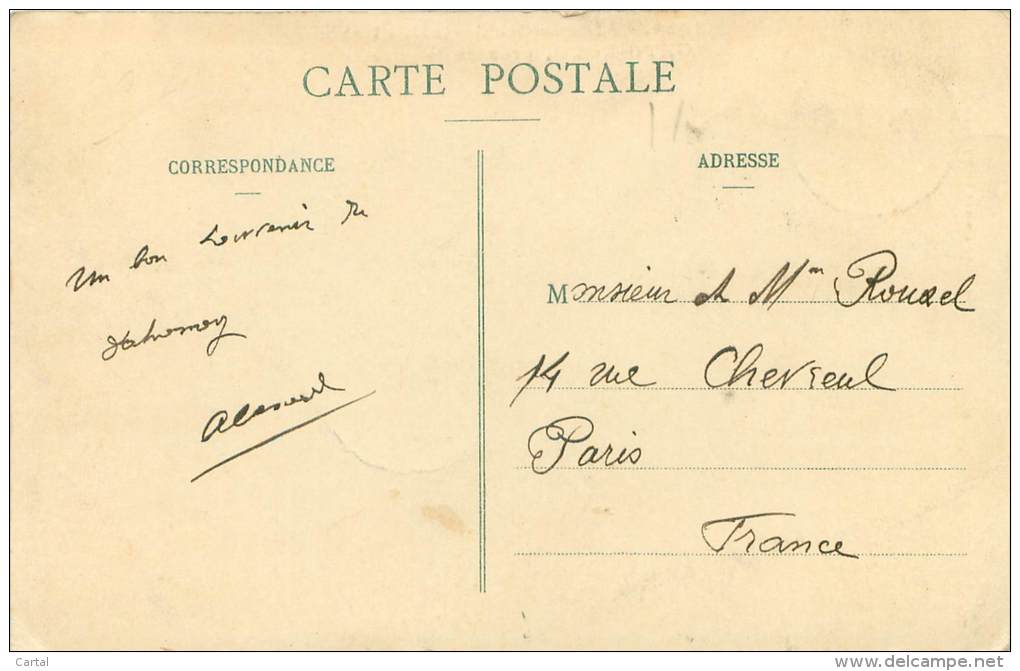 CARTE POSTALE
CORRESPONDANCE
Un bon souvenir du
Dahomey
ADRESSE
Monsieur et Mme Rouxel
14 rue Chevreul
Paris
France
Cartal
delcampe.net